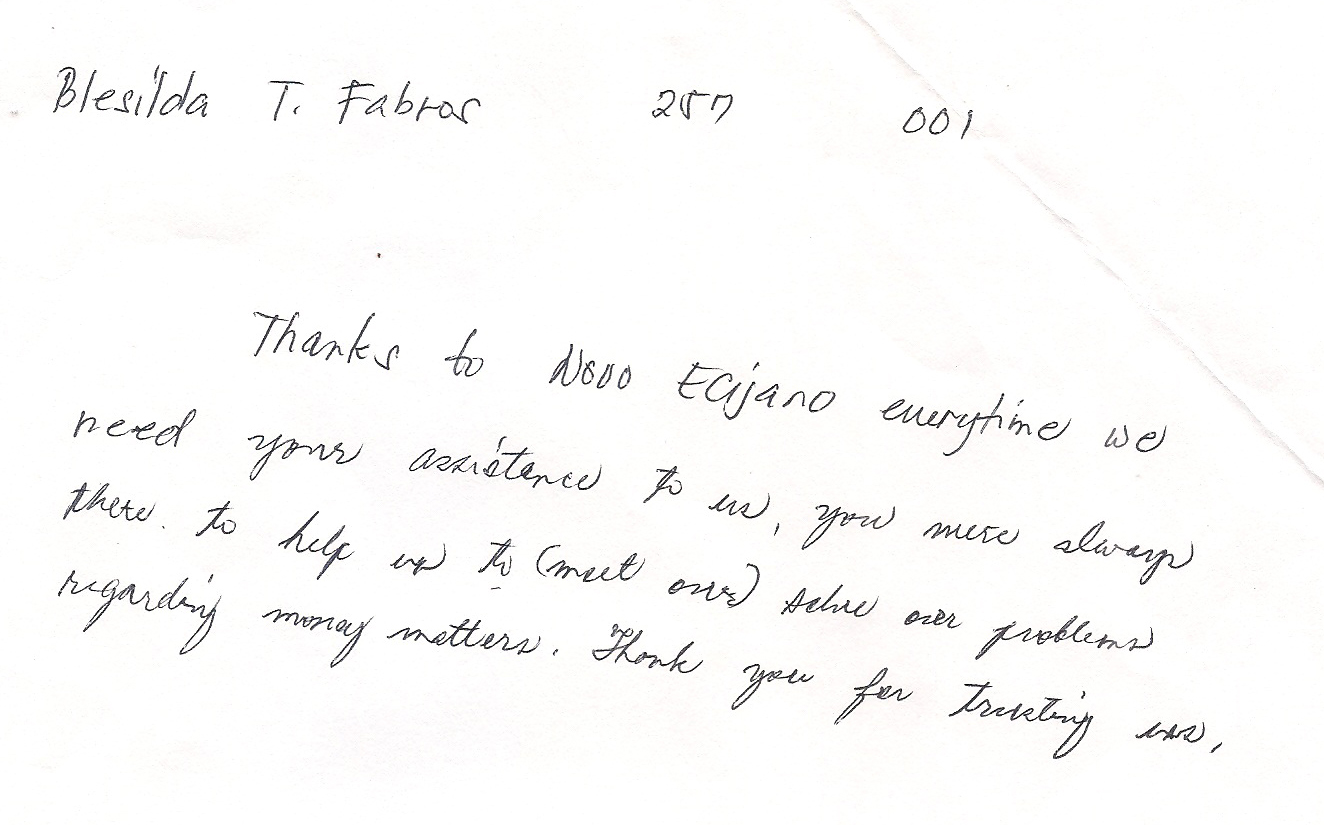 Blesilda T. Fabros 257 001
Thanks to Novo Ecijano everytime we
need your assistance to us, you were always
there. to help us to (meet our) solve our problems
regarding money matters. Thank you for trusting us,